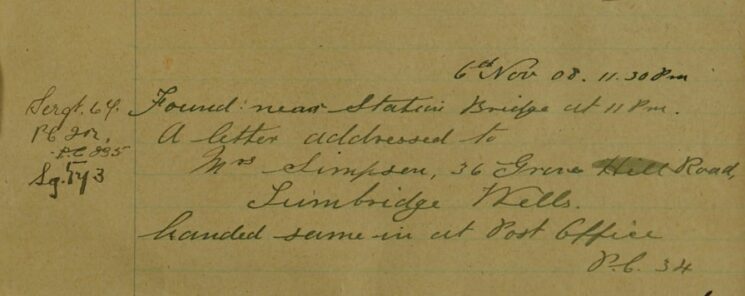 6th Nov 08. 11.30 Pm
Sergt. 64. Found: near Station Bridge at 11 Pm.
P.C. 202, A letter addressed to
P.C. 235 Mrs Simpson, 36 Grove Hill Road,
Sg. 543 Tumbridge Wells.
handed same in at Post Office
P.C. 34